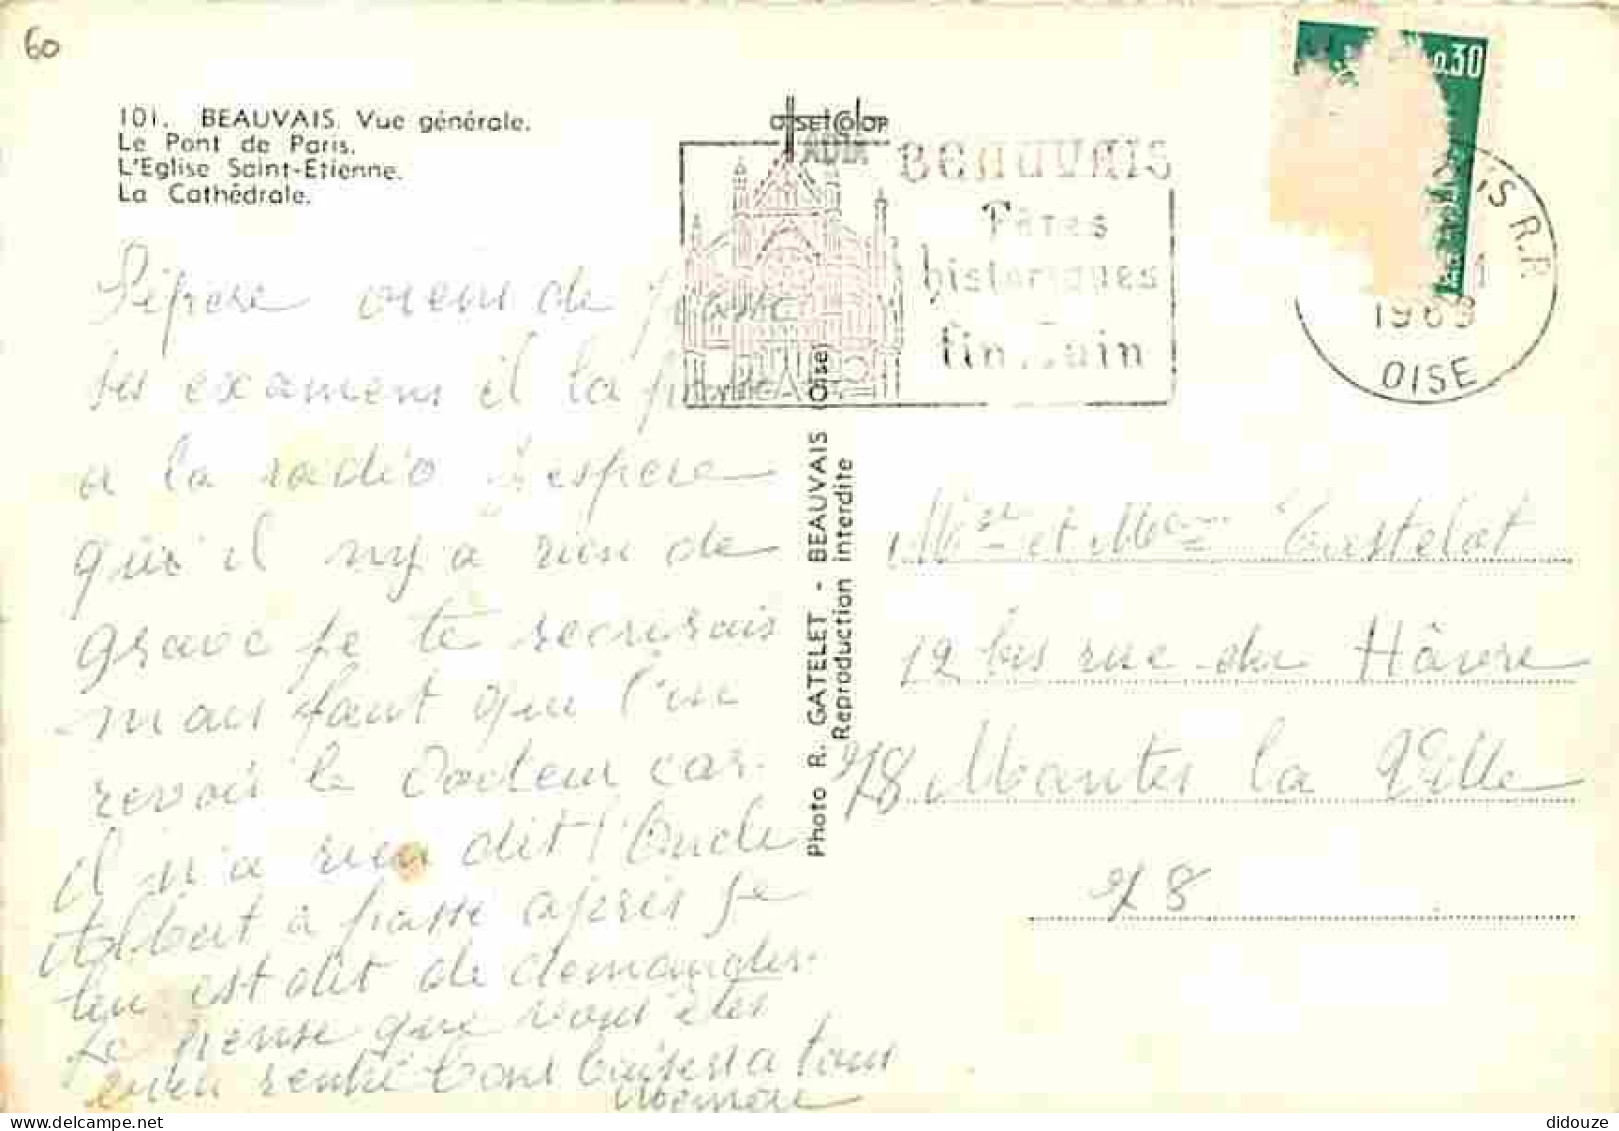 60
101. BEAUVAIS. Vue générale.
Le Pont de Paris.
L'Eglise Saint-Etienne.
La Cathédrale.
BEAUVAIS
Fêtes
historiques
fin juin
0.30
R.P
1969
OISE
Pépère viens de passe
ses examens il la passe
a la radio j'espere
qu'il n'y a rien de
grave je te recrirais
mais faut que l'on
revoir le docteur car
il n'a rien dit l'Oncle
Albert à passé après je
leu est dit de demander
Je pense que vous êtes
bien rentré bons baisers a tous
Memere
Photo R. GATELET - BEAUVAIS (Oise)
Reproduction interdite
Mr et Mme
12 bis rue du Hâvre
78 Mantes la Ville
78
didouze